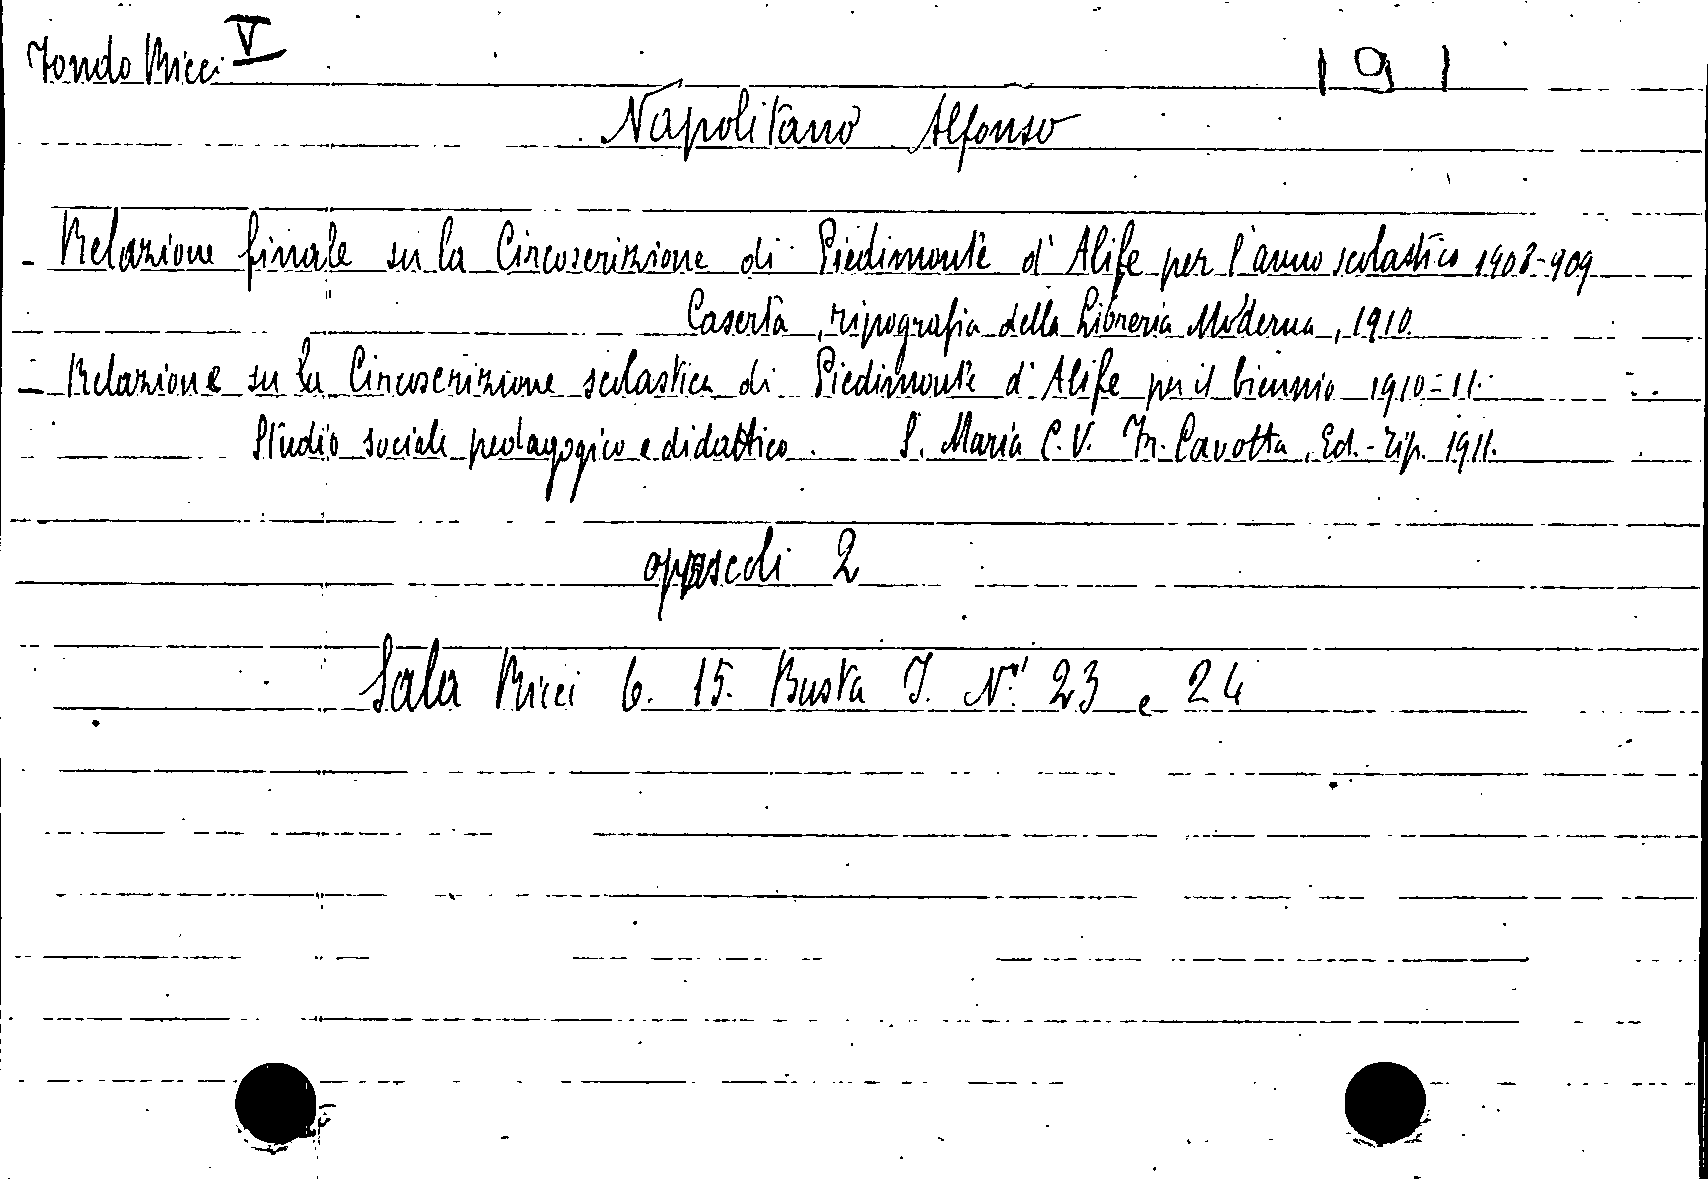 Fondo Ricci V
191
Napolitano Alfonso
- Relazione finale su la Circoscrizione di Piedimonte d'Alife per l'anno scolastico 1908-909
Caserta, tipografia della Libreria Moderna, 1910.
- Relazione su la Circoscrizione scolastica di Piedimonte d'Alife per il biennio 1910-11.
Studio sociale pedagogico e didattico. S. Maria C.V. Fr. Cavotta, Ed.-Tip. 1911.
opuscoli 2
Sala Ricci 6. 15. Busta I. Nri 23 e 24